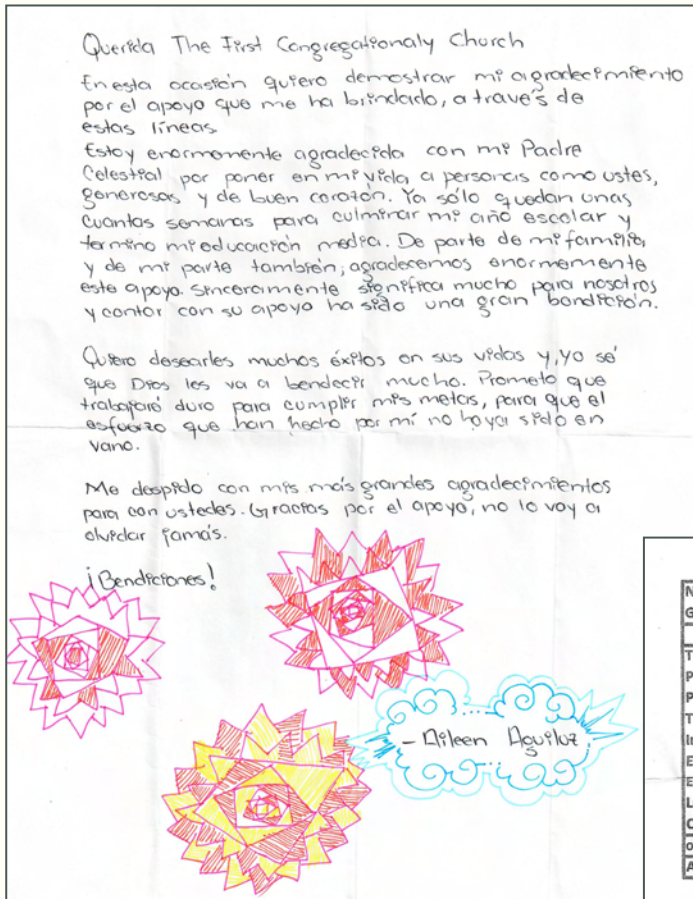 Querida The First Congregationaly Church
En esta ocasión quiero demostrar mi agradecimiento
por el apoyo que me ha brindado, a través de
estas líneas
Estoy enormemente agradecida con mi Padre
Celestial por poner en mi vida a personas como ustes,
generosas y de buen corazón. Ya sólo quedan unas
cuantas semanas para culminar mi año escolar y
termino mi educación media. De parte de mi familia,
y de mi parte también; agradecemos enormemente
este apoyo. Sinceramente significa mucho para nosotros
y contar con su apoyo ha sido una gran bendición.
Quiero desearles muchos éxitos en sus vidas y, yo sé
que Dios les va a bendecir mucho. Prometo que
trabajaré duro para cumplir mis metas, para que el
esfuerzo que han hecho por mí no haya sido en
vano.
Me despido con mis más grandes agradecimientos
para con ustedes. Gracias por el apoyo, no lo voy a
olvidar jamás.
¡Bendiciones!
- Aileen Aguiluz